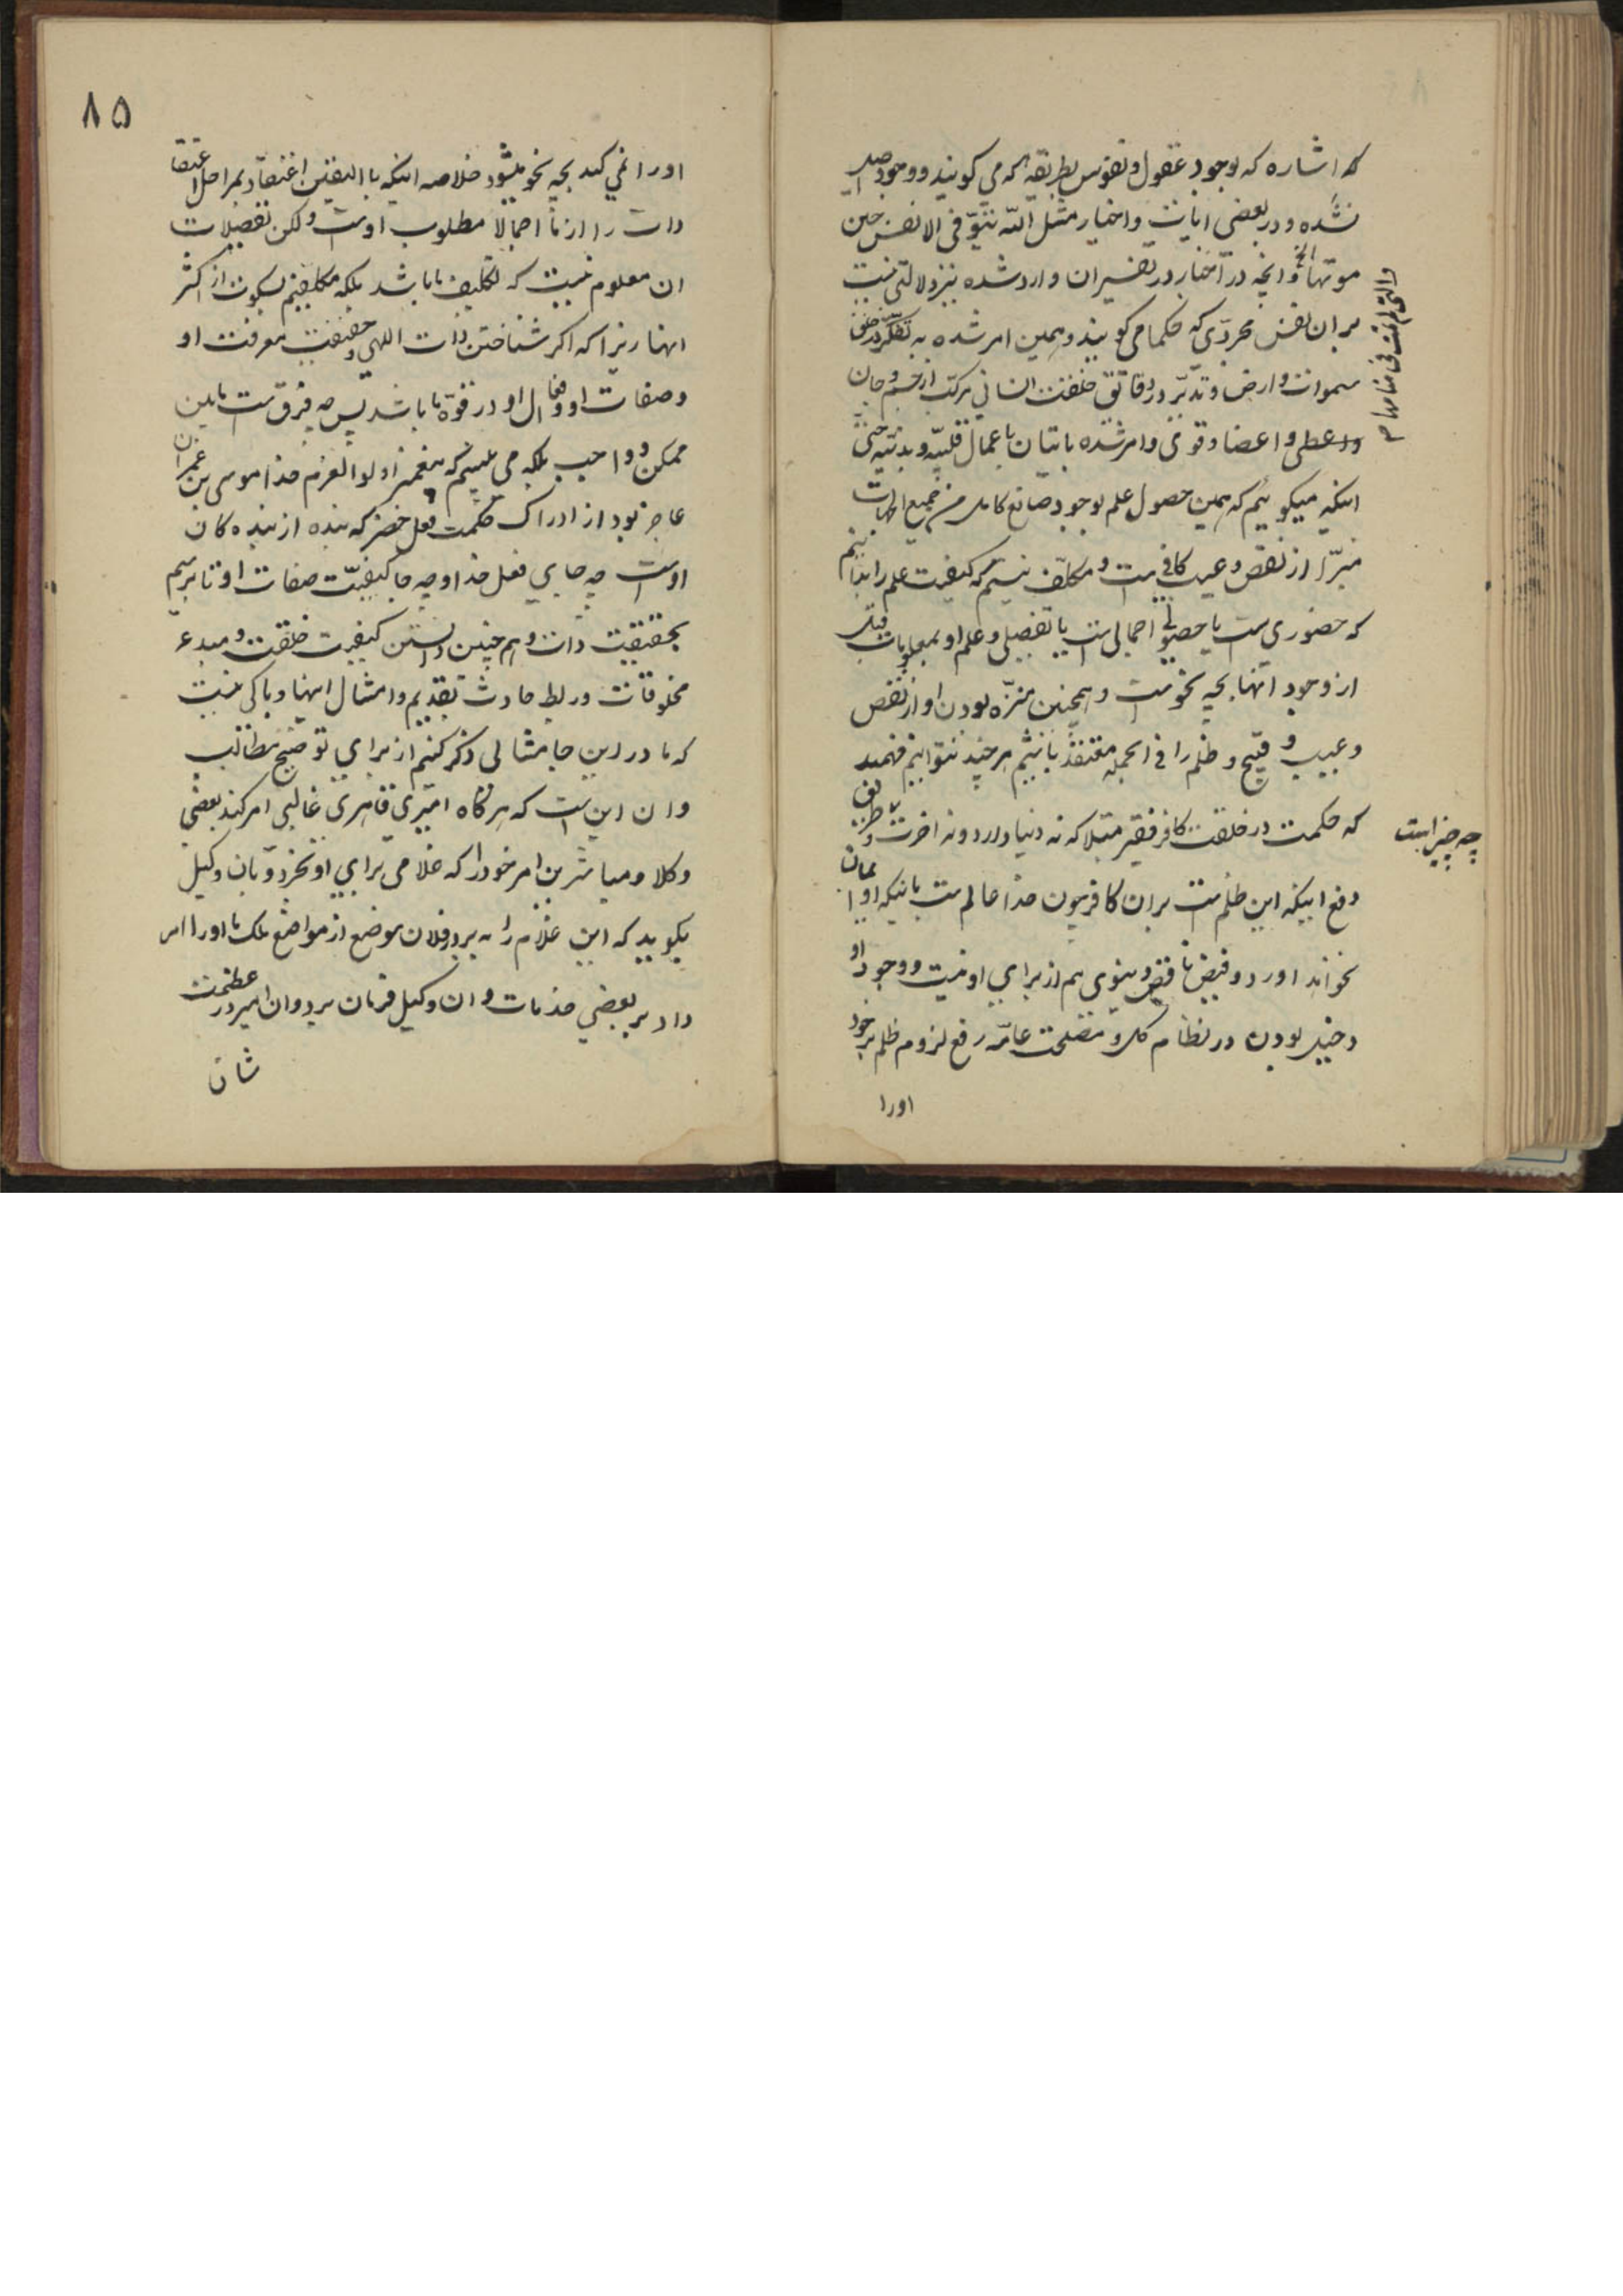 که اشاره که بوجود عقول و نفوس بطریقه که می گویند و وجود
نشده و در بعضی ایات و اخبار مثل الله یتوفی الانفس حین
موتها الخ و انچه در اخبار در تفسیر ان وارد شده نیز دلالتی نیست
والتی لم تمت فی منامها
بر ان نفس مجردی که حکما می گویند و همین امر شده به تفکر در خلق
سموات و ارض و تدبر در دقائق خلقت انسانی مرکب از جسم و جان
و اعضا و قوی و امر شده باتیان باعمال قلبیه و بدنیه حتی
اینکه میگوییم که همین حصول علم بوجود صانع کامل من جمیع الجهات
مبرا از نقص و عیب کافیست و مکلف نیستیم که کیفیت علم را بدانیم
که حضوری ست یا حصولی اجمالی ست یا تفصیلی و علم او بمعلومات قبل
از وجود انها بچه نحو ست و همچنین منزه بودن او از نقص
و عیب و قبیح و ظلم را فی الجمله معتقد باشیم هر چند نتوانیم فهمید
که حکمت در خلقت کافر فقیر مبتلا که نه دنیا دارد و نه اخرت و طریق
چه چیز است
دفع اینکه این ظلم ست بر ان کافر چون خدا عالم ست باینکه او ایمان
نخواند اورد و فیض ناقص دنیوی هم از برای او نیست و وجود او
دخیل بودن در نظام کل و مصلحت عامه رفع لزوم ظلم بر خود
اورا
۸۵
اورا نمی کند بچه نحو میشود خلاصه اینکه با الیقین اعتقاد بمراحل اعتقا
دات را از ما اجمالا مطلوب اوست ولکن تفصیلات
ان معلوم نیست که تکلیف ما باشد بلکه مکلفیم بسکوت از اکثر
انها زیرا که اکر شناختن ذات الهی و حقیقت معرفت او
و صفات او و افعال او در قوه ما باشد پس چه فرق ست مابین
ممکن و واجب بلکه می بینیم که پیغمبر اولوا لعزم خدا موسی بن عمران
عاجز بود از ادراک حکمت فعل خضر که بنده از بنده کان
اوست چه جای فعل خدا و چه جا کیفیت صفات او تا برسیم
بحقیقت ذات و هم چنین دانستن کیفیت خلقت و مبدء
مخلوقات و ربط حادث بقدیم و امثال اینها و باکی نیست
که ما در این جا مثالی ذکر کنیم از برای توضیح مطالب
و ان این ست که هر گاه امیری قاهری غالبی امر کند بعضی
وکلا و مباشرین امر خود را که غلامی برای او بخرد و بان وکیل
بکوید که این غلام را به بر در فلان موضع از مواضع ملک ما اورا امر
داد بر بعضی خدمات و ان وکیل فرمان برد و ان امیر در عظمت
شان